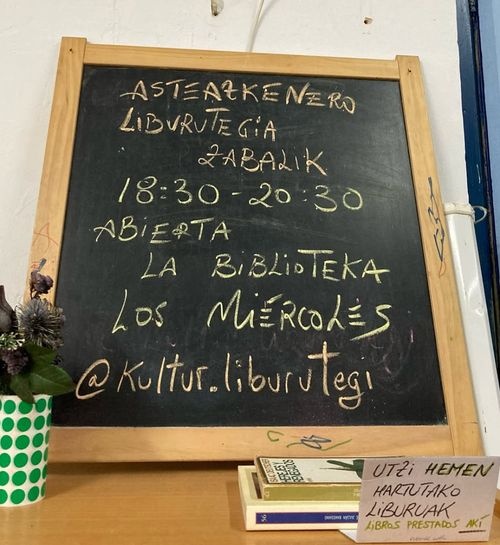 ASTEAZKENERO
LIBURUTEGIA
ZABALIK
18:30 - 20:30
ABIERTA
LA BIBLIOTEKA
LOS MIÉRCOLES
@kultur.liburutegi
UTZI HEMEN
HARTUTAKO
LIBURUAK
LIBROS PRESTADOS AKÍ